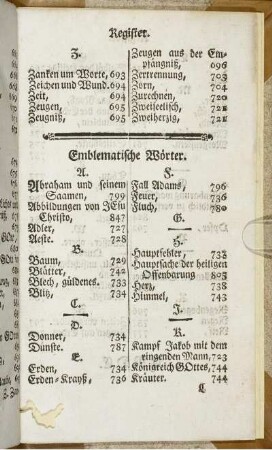 Register.
Z.
Zanken um Worte, 693
Zeichen und Wund. 694
Zeit, 694
Zeugen, 695
Zeugniß, 695
Zeugen aus der Em-
pfängniß, 696
Zertrennung, 703
Zorn, 704
Zurechnen, 720
Zweifeltisch, 721
Zweyherzig, 721
Emblematische Wörter.
A.
Abraham und seinem
Saamen, 799
Abbildungen von JEsu
Christo, 847
Adler, 727
Aeste. 728
B.
Baum, 729
Blätter, 742
Blech, güldenes. 733
Blitz, 734
C.
D.
Donner, 734
Dünste. 787
E.
Erden, 734
Erden-Krayß, 736
F.
Fall Adams, 796
Feuer, 736
Fluch, 780
G.
H.
Hauptfehler, 732
Hauptsache der heiligen
Offenbarung 803
Herz, 738
Himmel, 743
J.
K.
Kampf Jakob mit dem
ringenden Mann, 723
Königreich GOttes, 744
Kräuter. 744